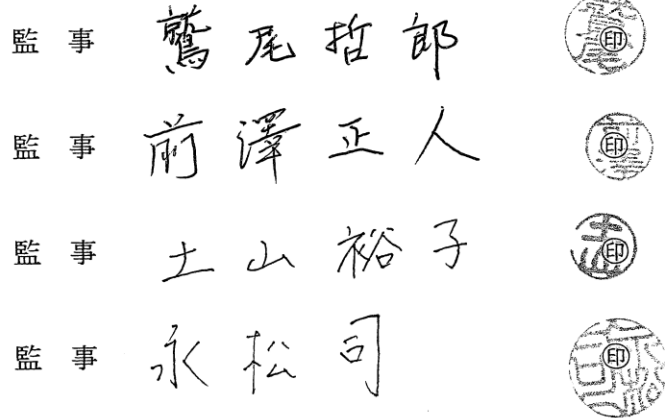 監事 鷲尾哲郎 ㊞
監事 前澤正人 ㊞
監事 土山裕子 ㊞
監事 永松司 ㊞